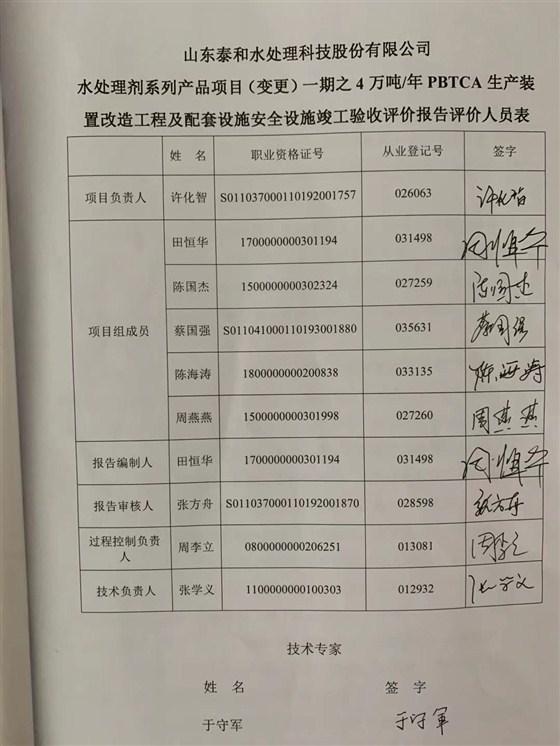 山东泰和水处理科技股份有限公司
水处理剂系列产品项目（变更）一期之 4 万吨/年 PBTCA 生产装
置改造工程及配套设施安全设施竣工验收评价报告评价人员表
姓 名 职业资格证号 从业登记号 签字
项目负责人 许化智 S011037000110192001757 026063 许化智
项目组成员 田恒华 1700000000301194 031498 田恒华
陈国杰 1500000000302324 027259 陈国杰
蔡国强 S011041000110193001880 035631 蔡国强
陈海涛 1800000000200838 033135 陈海涛
周燕燕 1500000000301998 027260 周燕燕
报告编制人 田恒华 1700000000301194 031498 田恒华
报告审核人 张方舟 S011037000110192001870 028598 张方舟
过程控制负责
人 周李立 0800000000206251 013081 周李立
技术负责人 张学义 1100000000100303 012932 张学义
技术专家
姓 名 签 字
于守军 于守军